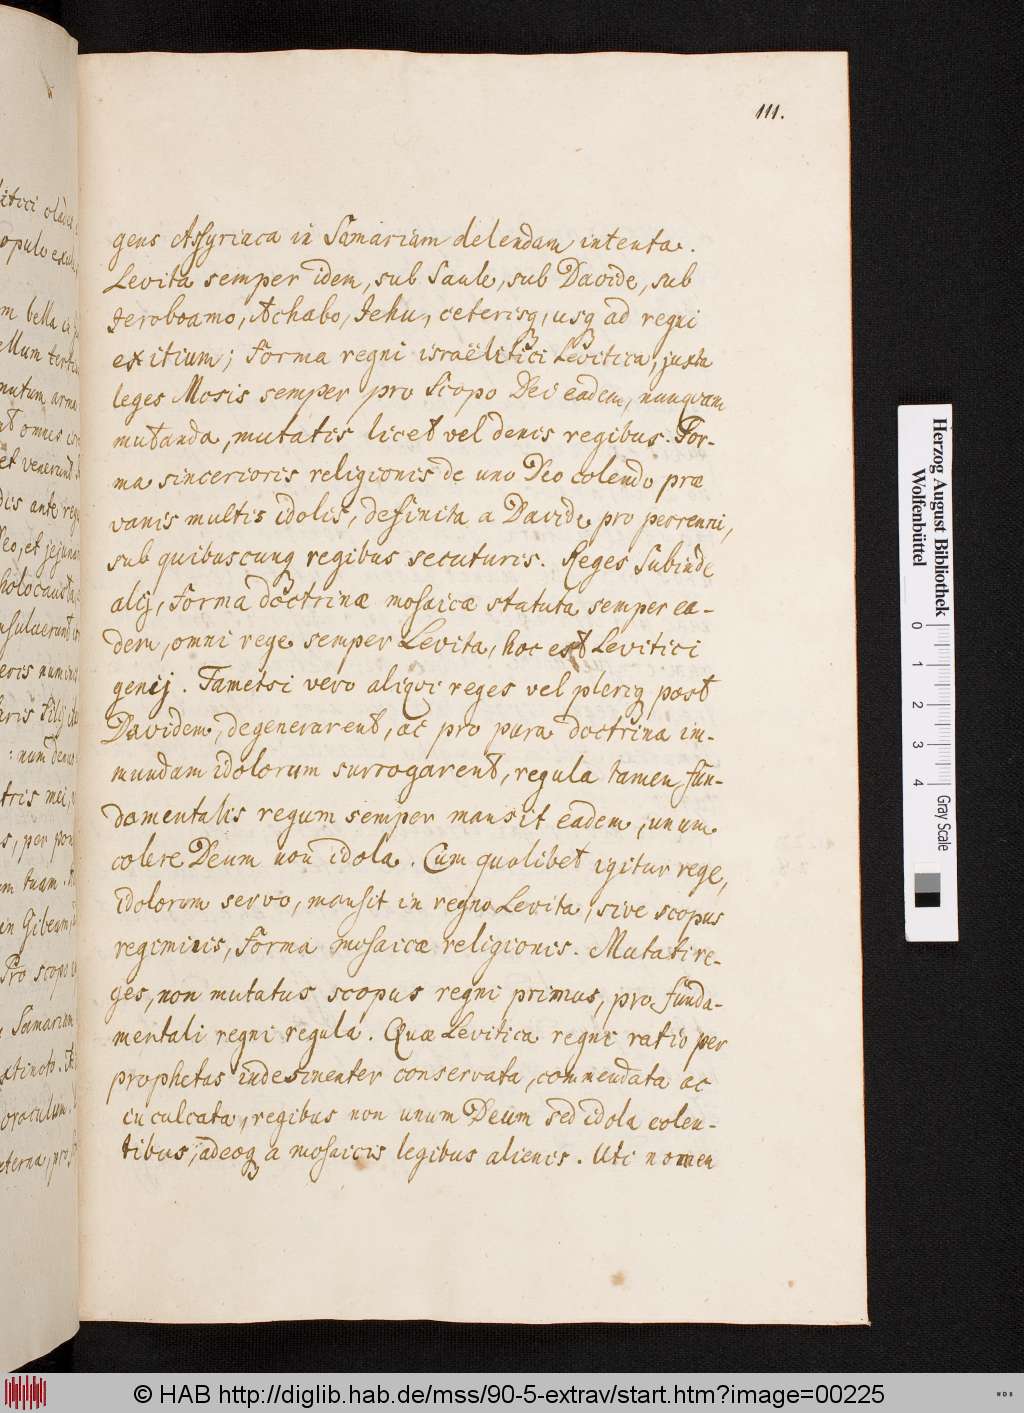 111.
gens Assyriaca in Samariam delendam intenta.
Levita semper idem, sub Saule, sub Davide, sub
Jeroboamo, Achabo, Jehu, ceterisq, usq ad regni
exitium; forma regni israëlitici Levitica, juxta
leges Mosis semper pro scopo Dei eadem, nunquam
mutanda, mutatis licet vel denis regibus. For-
ma sincerioris religionis de uno Deo colendo præ
vanis multis idolis, definita a Davide pro perenni,
sub quibuscunq regibus secuturis. Reges subinde
alij, forma doctrinæ mosaicæ statuta semper ea-
dem, omni rege semper Levita, hoc est Levitici
genij. Tametsi vero aliqvi reges vel pleriq post
Davidem, degenerarent, ac pro pura doctrina im-
mundam idolorum surrogarent, regula tamen fun-
damentalis regum semper mansit eadem, unum
colere Deum non idola. Cum quolibet igitur rege,
idolorum servo, mansit in regno Levita, sive scopus
regiminis, forma mosaicæ religionis. Mutati re-
ges, non mutatus scopus regni primus, pro funda-
mentali regni regula. Quæ Levitica regni ratio per
prophetas indesinenter conservata, commendata ac
inculcata, regibus non unum Deum sed idola colen-
tibus, adeoq a mosaicis legibus alienis. Uti nomen
Herzog August Bibliothek
Wolfenbüttel
0 1 2 3 4
Gray Scale
© HAB http://diglib.hab.de/mss/90-5-extrav/start.htm?image=00225